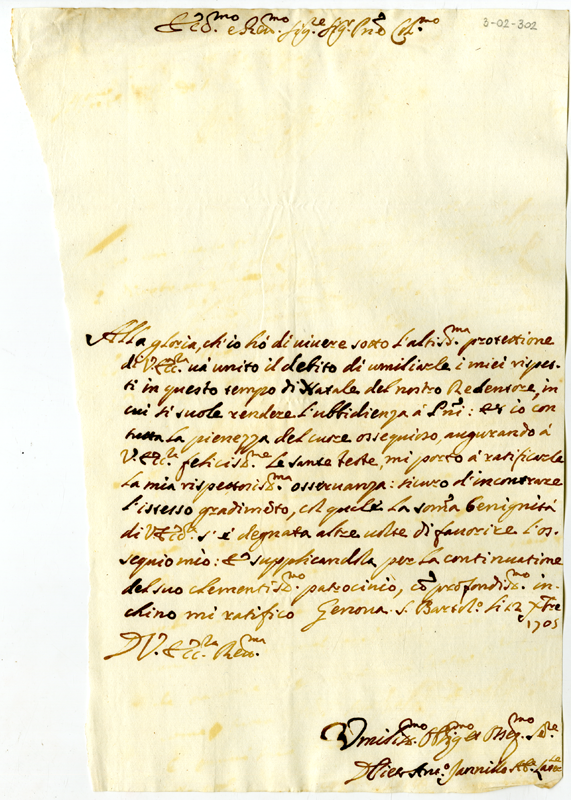 3-02-302
Ecc.mo e Rev.mo Sig.re Sig.r Prõn Col.mo
Alla gloria, ch'io hò di uiuere sotto l'altiss.ma protettione
di V. Ecc.za uà unito il debito di umiliarle i miei rispet-
ti in questo tempo di Natale del nostro Redentore, in
cui si suole rendere l'ubbidienza a P.ni: Et io con
tutta la pienezza del cuore ossequioso, augurando à
V. Ecc.za felicis.me le sante feste, mi porto à ratificarle
la mia rispettosis.ma osseruanza: sicuro d'incontrare
l'istesso gradimẽto, col quale la som̃a benignità
di V. Ecc.za s'è degnata altre uolte di fauorire l'os-
sequio mio: Et supplicandola per la continuatione
del suo clementis.mo patrocinio, cõ profondis.mo in-
chino mi ratifico Genoua S. Bartol.o li 12 Xbre
1705
D V. Ecc.za Rev.ma
Vmilis.mo Oblig.mo Osseq.mo Se.re
D Pier Ant.o